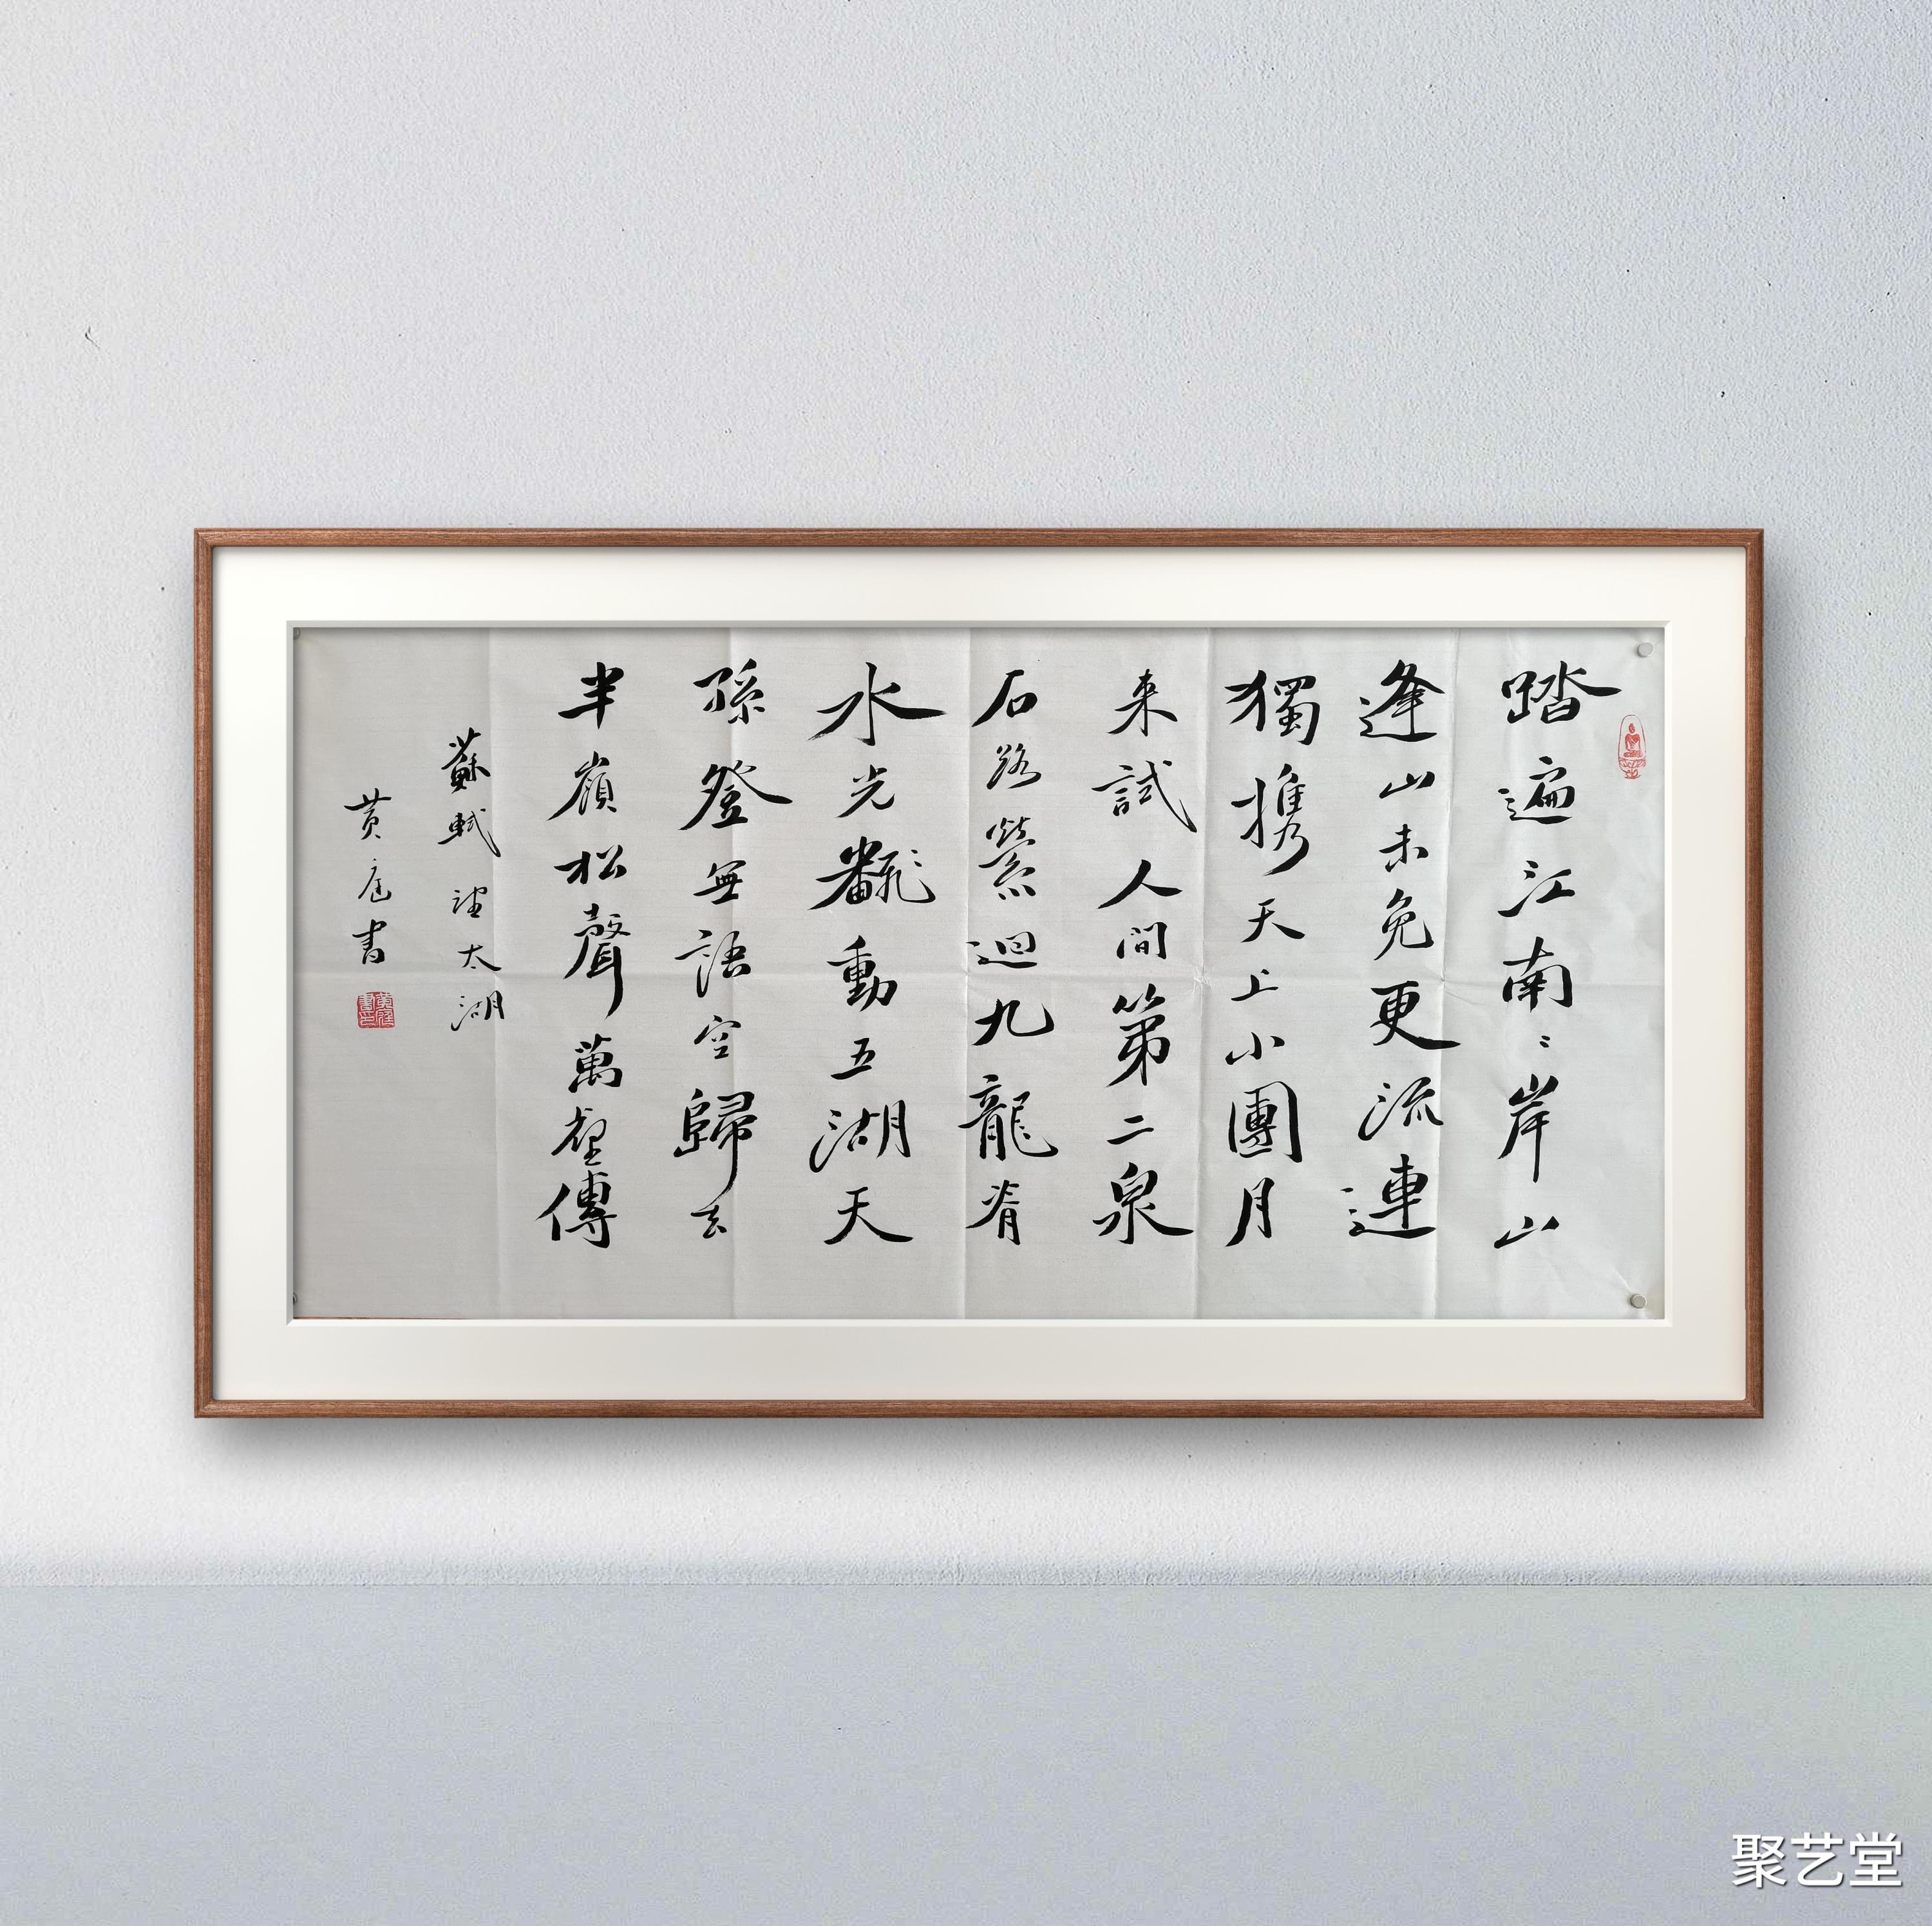 踏遍江南〻岸山
逢山未免更流連
獨携天上小團月
来試人間第二泉
石路縈迴九龍脊
水光飜動五湖天
孫登無語空歸去
半嶺松聲萬壑傳
蘇軾 望太湖
黄庭書
聚艺堂